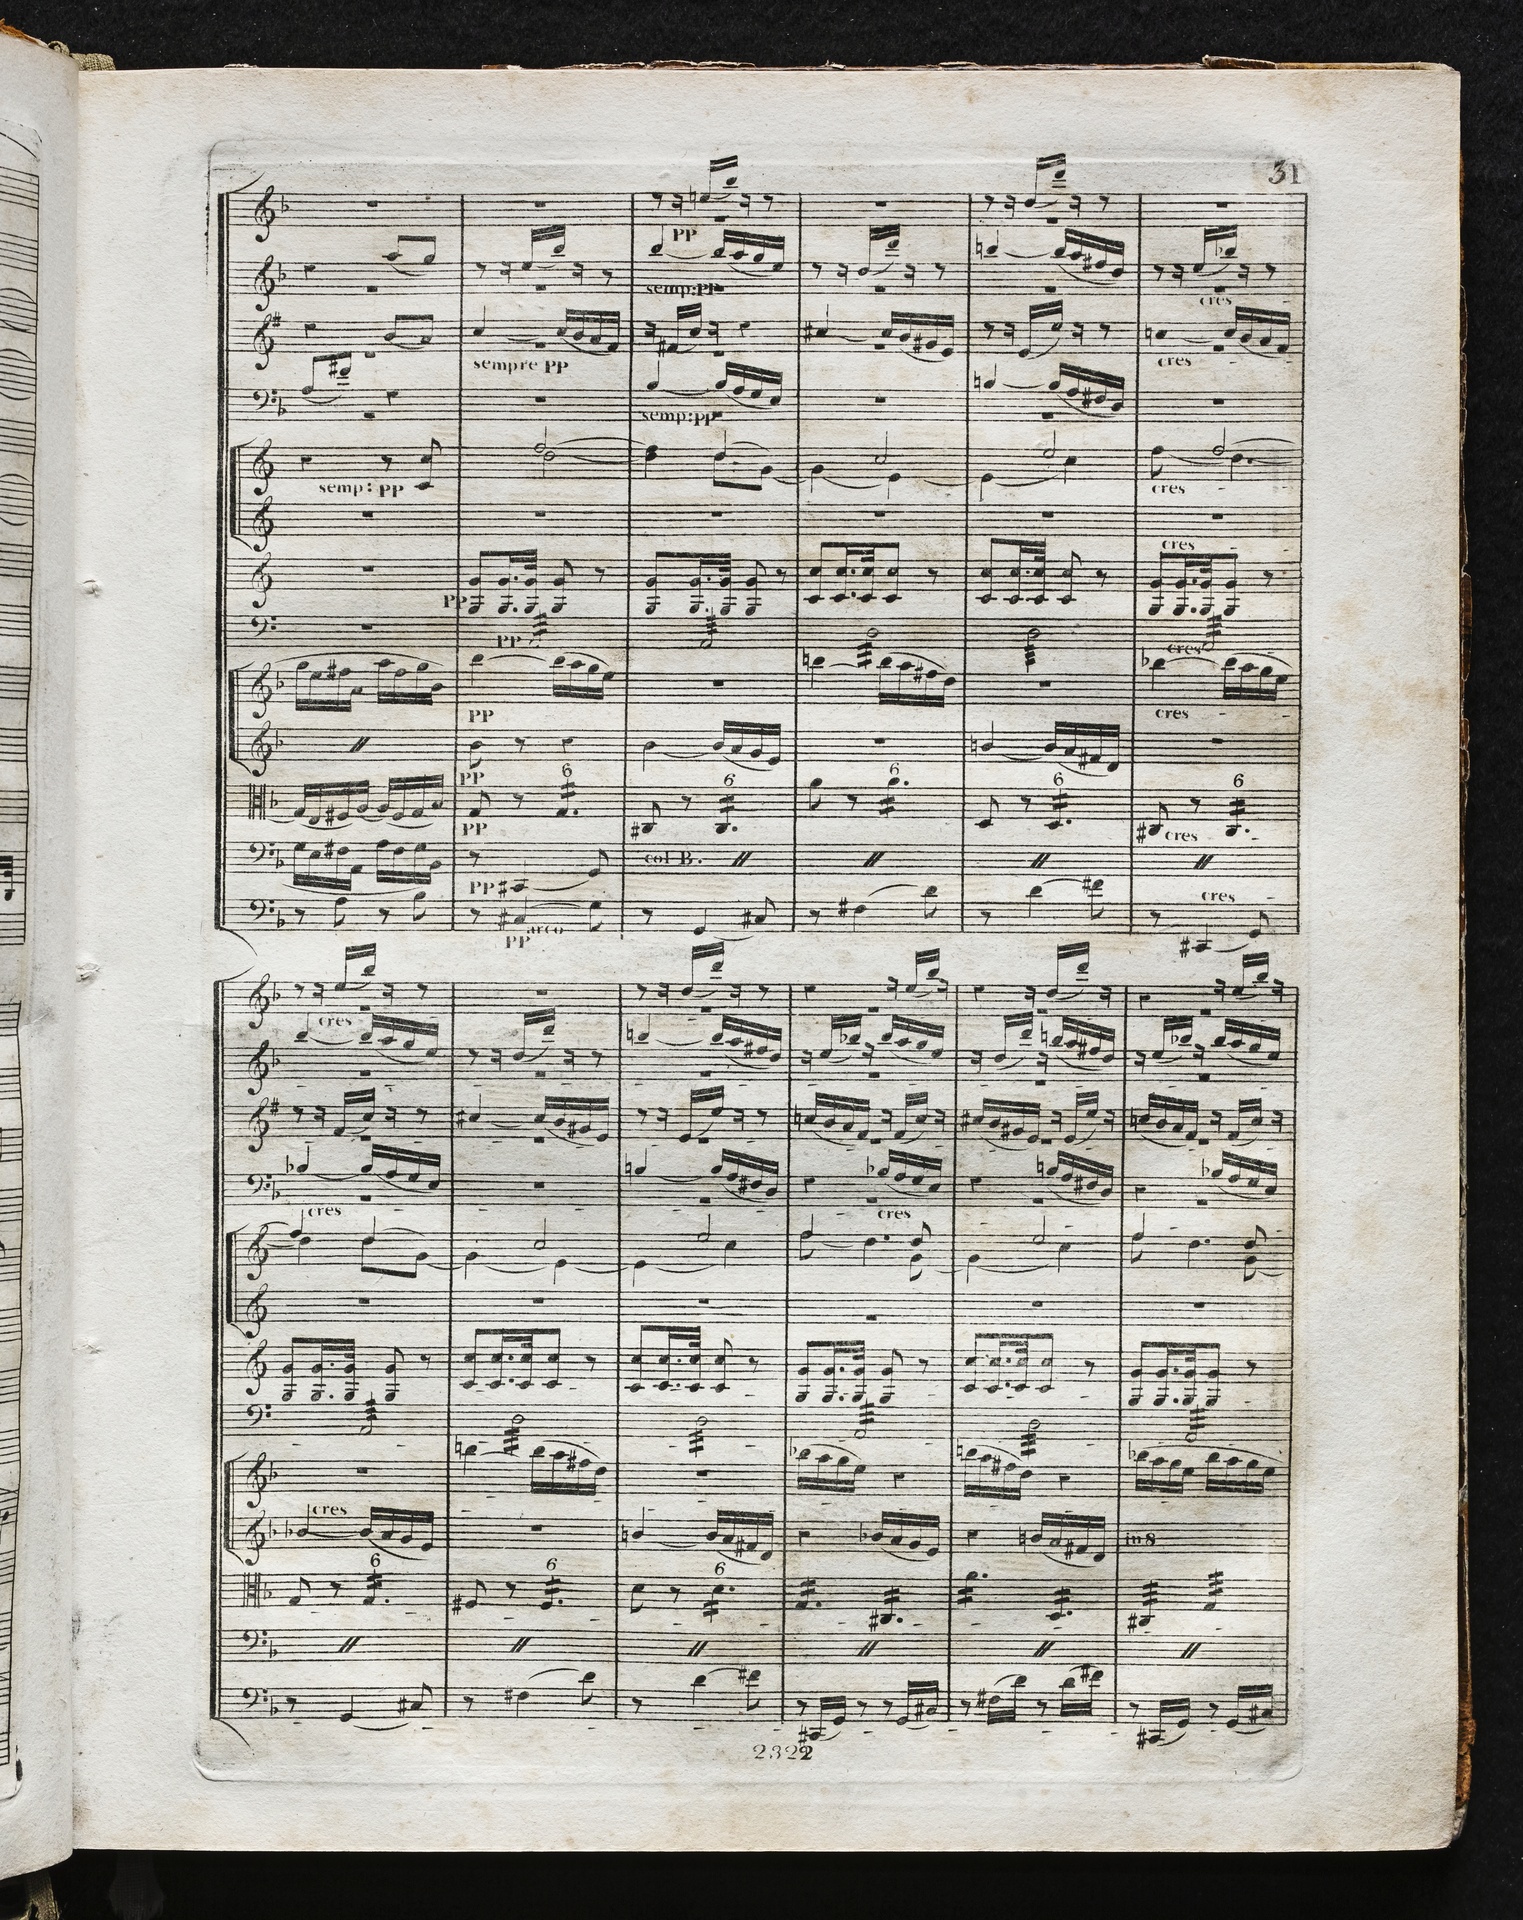 31
PP
semp: PP
cres
sempre PP
cres
semp: PP
semp: PP
cres
cres
PP
PP
cres
PP
cres
PP
6
6
6
6
6
PP
cres
col B.
PP
cres
arco
PP
cres
cres
cres
cres
6
6
6
in 8
2322